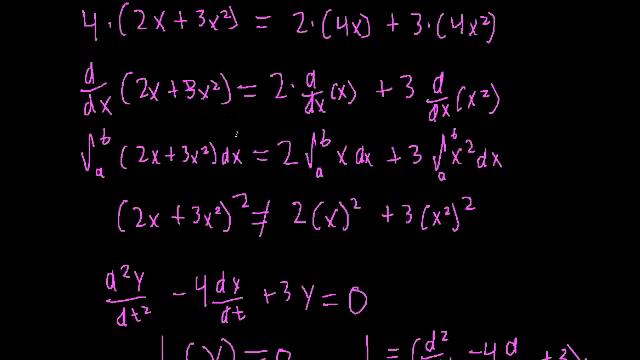 4·(2x+3x²) = 2·(4x) + 3·(4x²)
d/dx (2x+3x²) = 2·d/dx (x) + 3 d/dx (x²)
∫ₐᵇ (2x+3x²)dx = 2∫ₐᵇ x dx + 3∫ₐᵇ x² dx
(2x+3x²)² ≠ 2(x)² + 3(x²)²
d²y/dt² - 4dy/dt + 3y = 0
L(y)=0 L = (d² -4d +3)